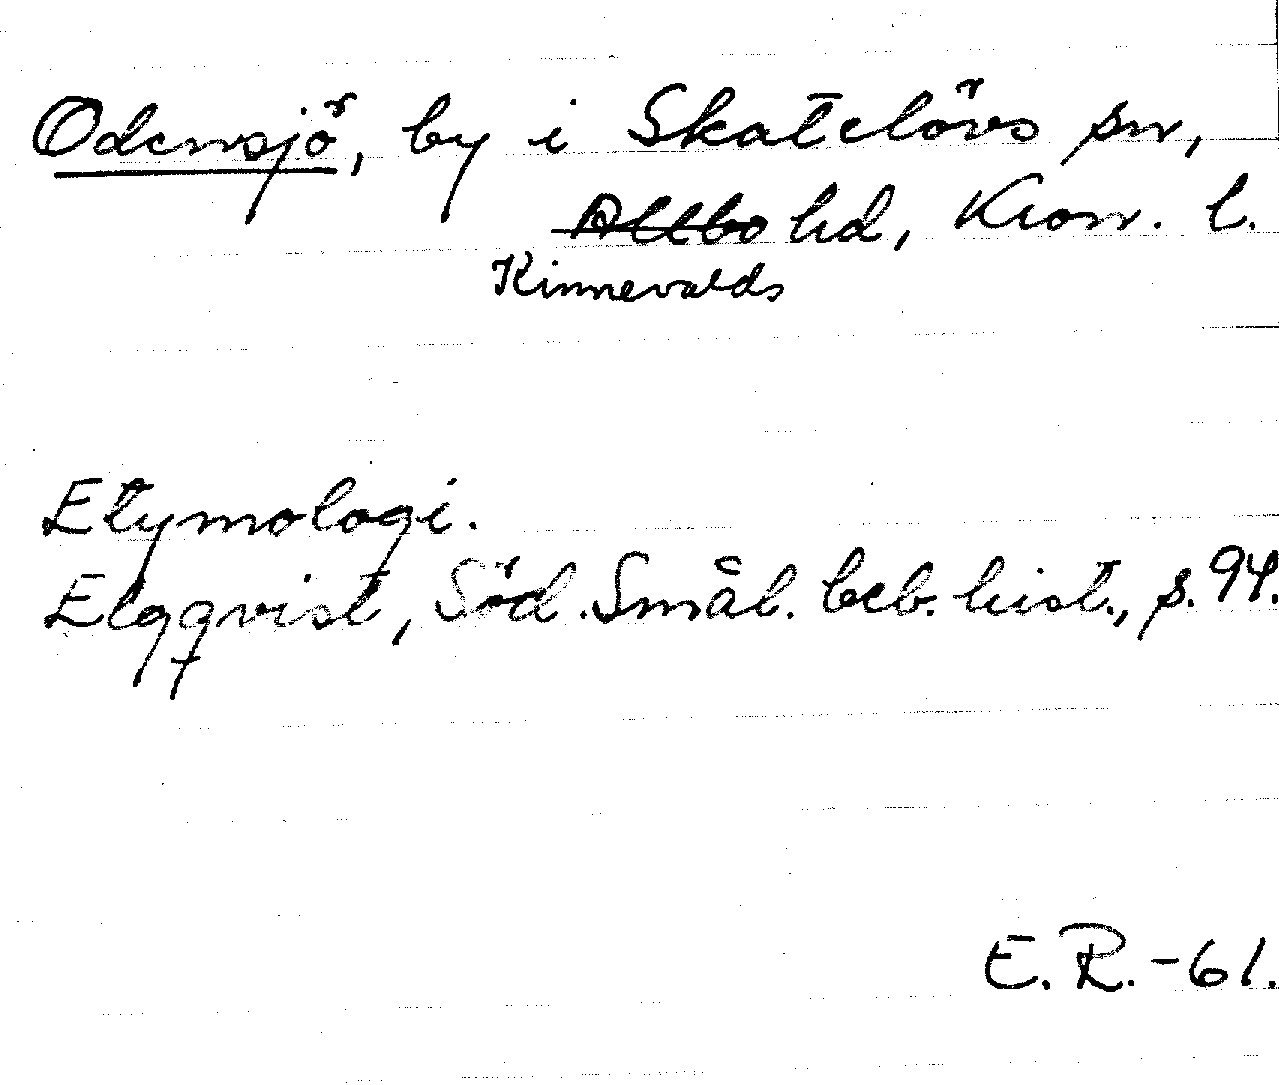 Odensjö, by i Skatelövs sn,
Allbo hd, Kron. l.
Kinnevalds
Etymologi.
Elgqvist, Söd. Smål. beb. hist., s. 94.
E. R. -61.